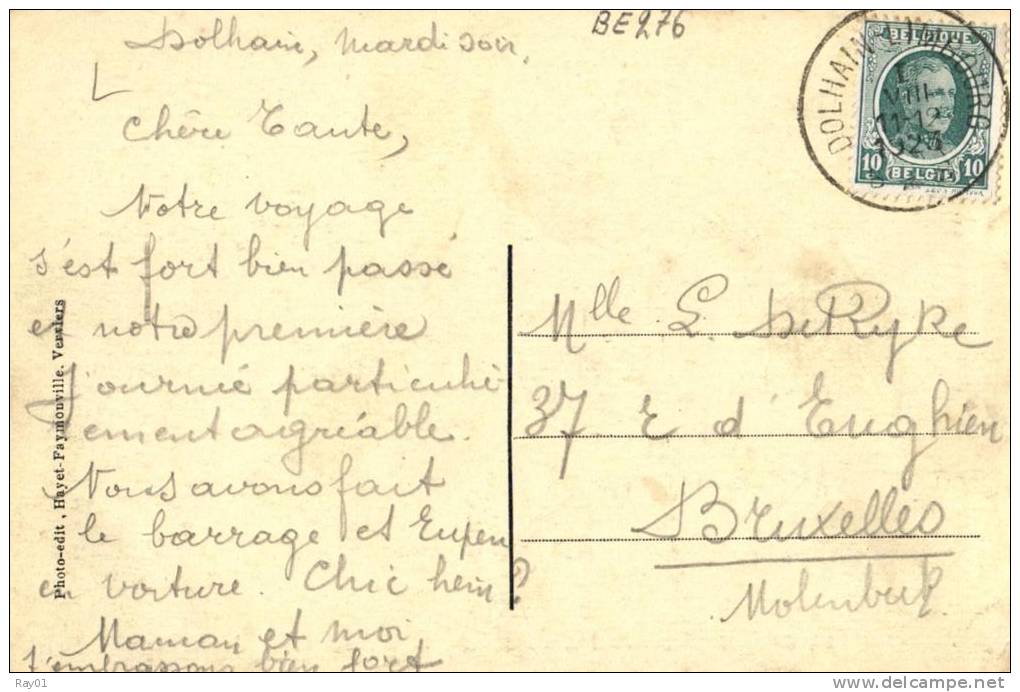 BE276
Dolhain, mardi soir,
Chère Tante,
Notre voyage
s'est fort bien passé
et notre première
journée particuliè
ement agréable.
Nous avons fait
le barrage et Eupen
en voiture. Chic hein?
Maman et moi,
t'embrassons bien fort
Photo-edit, Hayet-Faymonville. Verviers
DOLHAIN-LIMBOURG
VIII
11-12
BELGIQUE
10 BELGIE 10
Mlle L. DeRyke
37 r d'Enghien
Bruxelles
Molenbeek
Ray01
delcampe.net